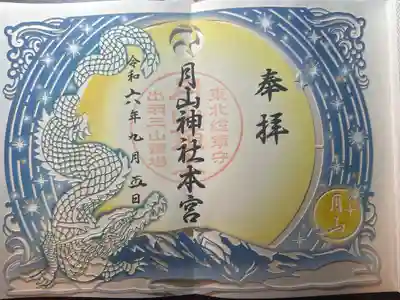 奉拝
月山神社本宮
令和六年九月五日
月山
東北総鎮守
出羽三山霊場